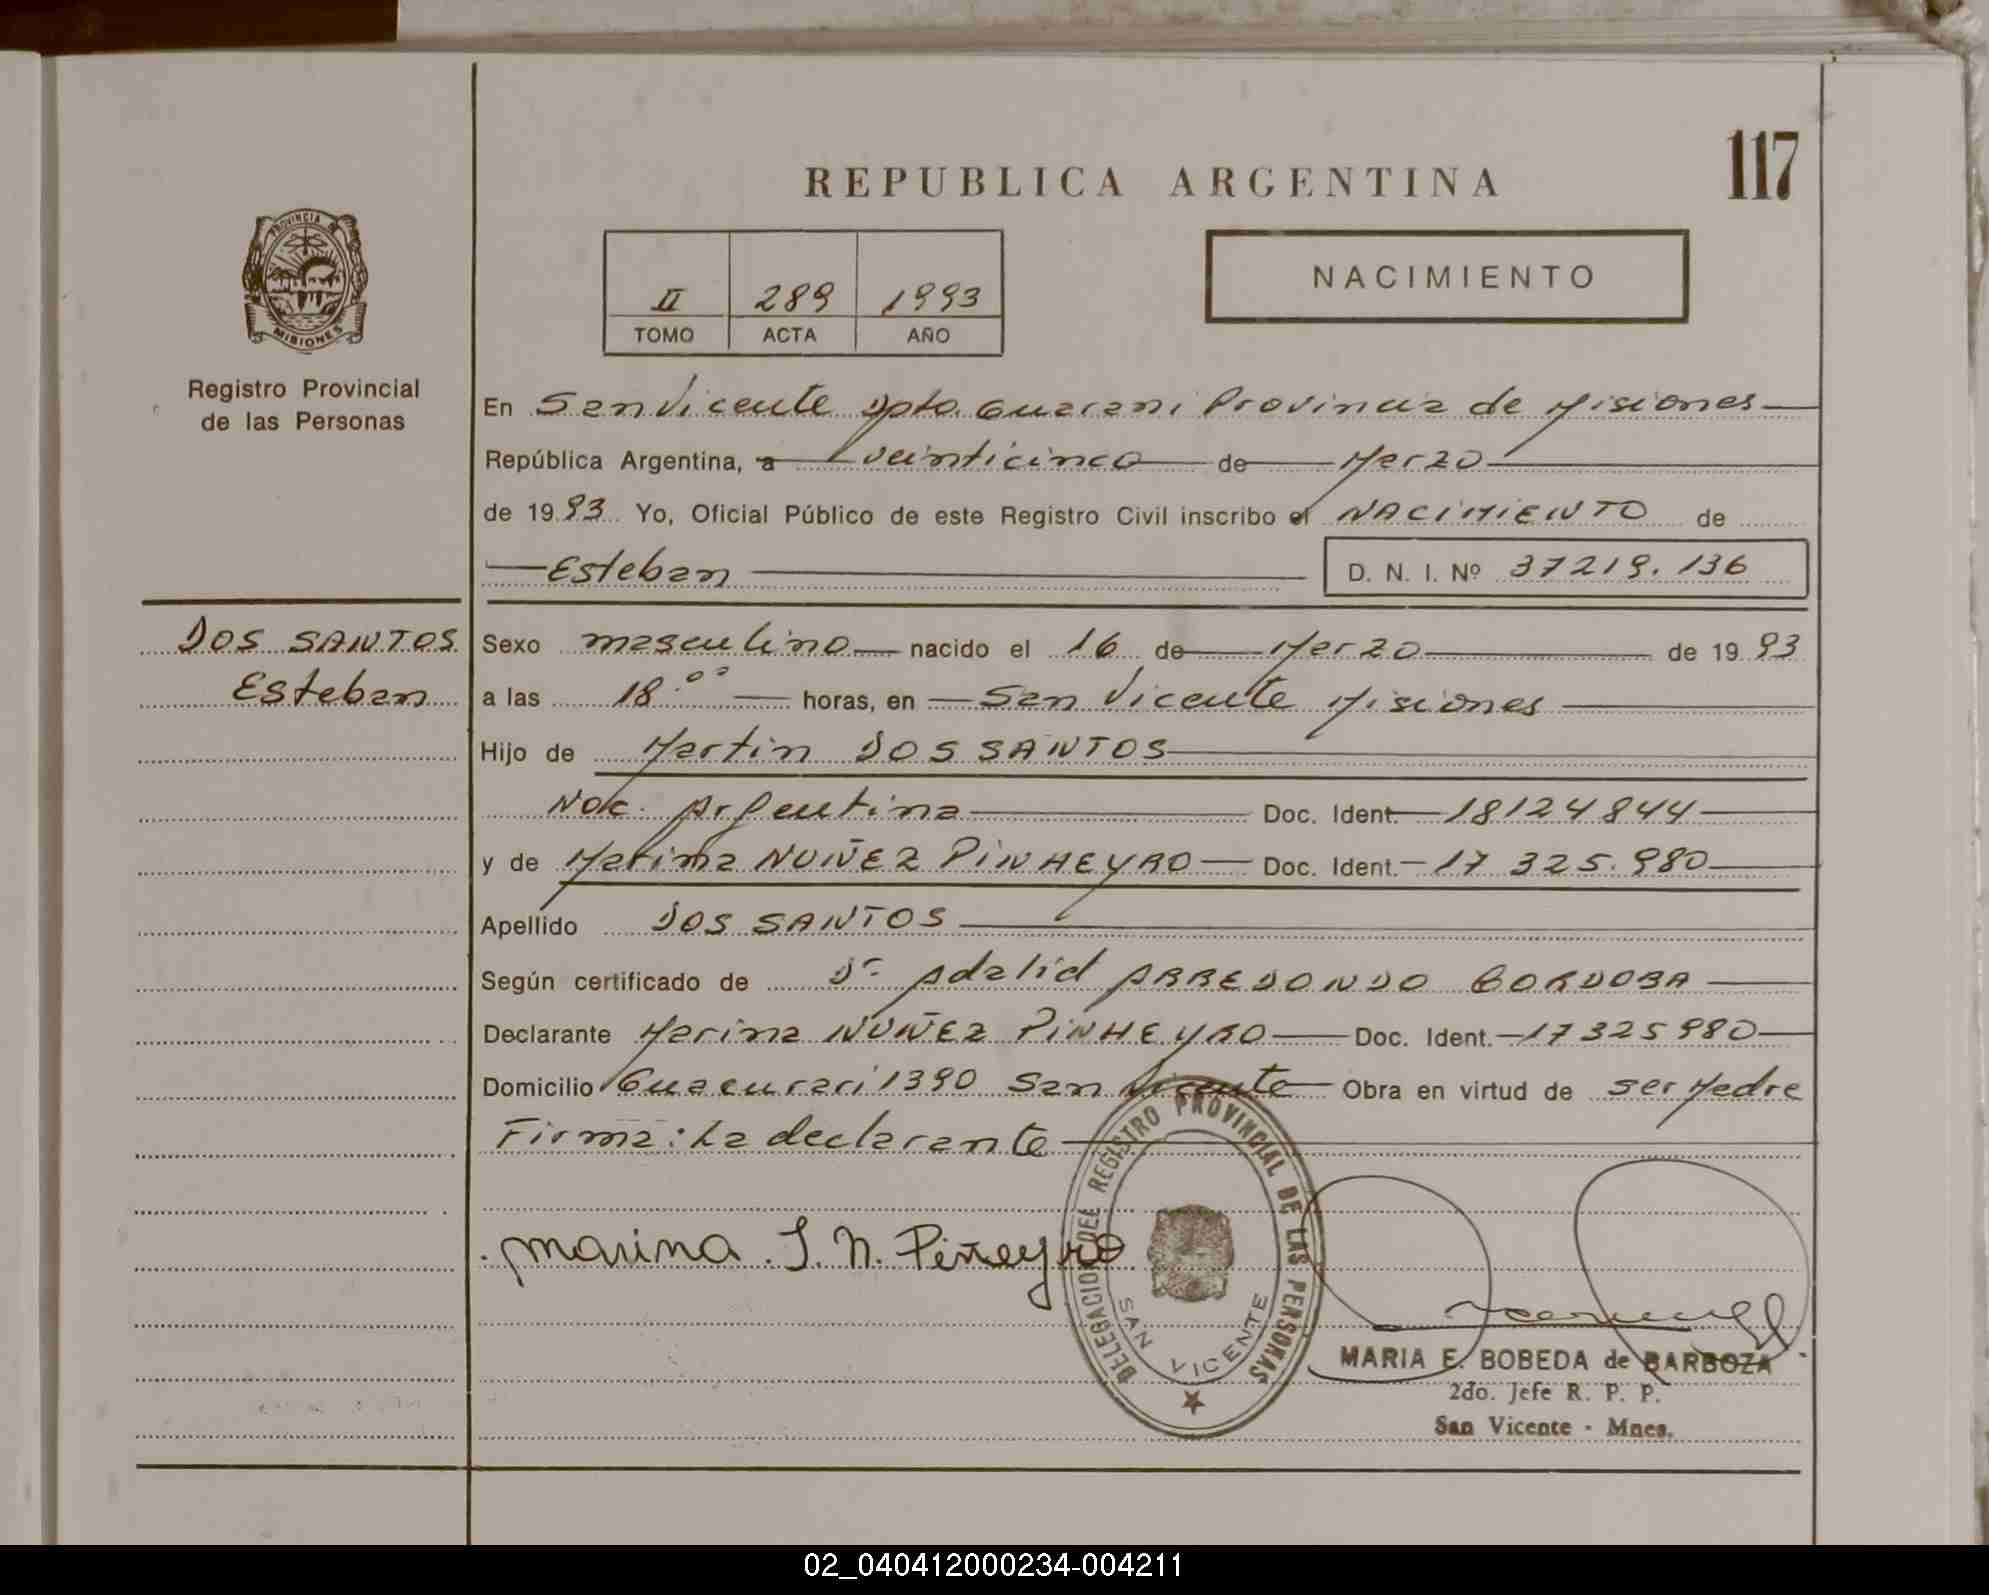 117
REPUBLICA ARGENTINA
NACIMIENTO
II 289 1993
TOMO ACTA AÑO
PROVINCIA DE MISIONES
Registro Provincial
de las Personas
En San Vicente Dpto. Guarani Provincia de Misiones
República Argentina, a veinticinco de Marzo
de 1993 Yo, Oficial Público de este Registro Civil inscribo el NACIMIENTO de
Esteban D. N. I. Nº 37219.136
DOS SANTOS
Esteban
Sexo masculino nacido el 16 de Marzo de 1993
a las 18.00 horas, en San Vicente Misiones
Hijo de Martin DOS SANTOS
Nac. Argentina Doc. Ident. 18124844
y de Marina NUÑEZ PINHEYRO Doc. Ident. 17 325.980
Apellido DOS SANTOS
Según certificado de Dr Adalid ARREDONDO CORDOBA
Declarante Marina NUÑEZ PINHEYRO Doc. Ident. 17325980
Domicilio Guacurari 1390 San Vicente Obra en virtud de ser Madre
Firma: La declarante
Marina. I. N. Piñeyro
DELEGACION DEL REGISTRO PROVINCIAL DE LAS PERSONAS
SAN VICENTE
MARIA E. BOBEDA de BARBOZA
2do. Jefe R. P. P.
San Vicente - Mnes.
02_040412000234-004211